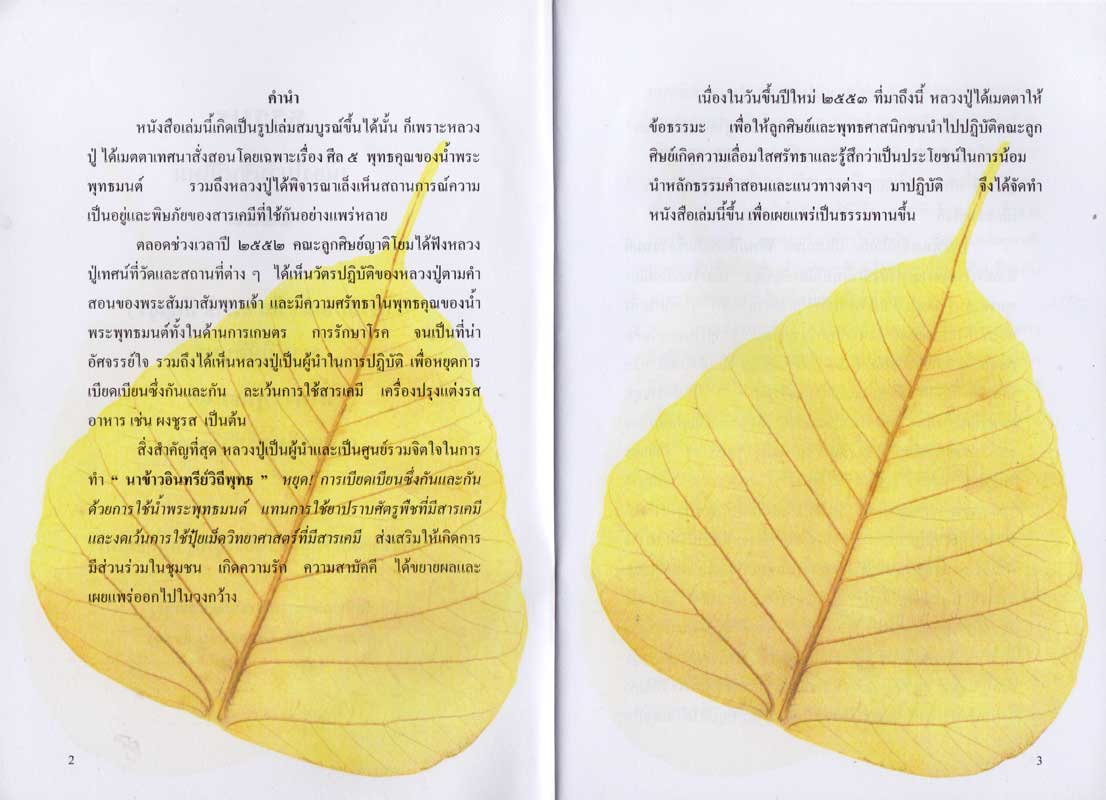 คำนำ
หนังสือเล่มนี้เกิดเป็นรูปเล่มสมบูรณ์ขึ้นได้นั้น ก็เพราะหลวง
ปู่ ได้เมตตาเทศนาสั่งสอนโดยเฉพาะเรื่อง ศีล ๕ พุทธคุณของน้ำพระ
พุทธมนต์ รวมถึงหลวงปู่ได้พิจารณาเล็งเห็นสถานการณ์ความ
เป็นอยู่และพิษภัยของสารเคมีที่ใช้กันอย่างแพร่หลาย
ตลอดช่วงเวลาปี ๒๕๕๒ คณะลูกศิษย์ญาติโยมได้ฟังหลวง
ปู่เทศน์ที่วัดและสถานที่ต่าง ๆ ได้เห็นวัตรปฏิบัติของหลวงปู่ตามคำ
สอนของพระสัมมาสัมพุทธเจ้า และมีความศรัทธาในพุทธคุณของน้ำ
พระพุทธมนต์ทั้งในด้านการเกษตร การรักษาโรค จนเป็นที่น่า
อัศจรรย์ใจ รวมถึงได้เห็นหลวงปู่เป็นผู้นำในการปฏิบัติ เพื่อหยุดการ
เบียดเบียนซึ่งกันและกัน ละเว้นการใช้สารเคมี เครื่องปรุงแต่งรส
อาหาร เช่น ผงชูรส เป็นต้น
สิ่งสำคัญที่สุด หลวงปู่เป็นผู้นำและเป็นศูนย์รวมจิตใจในการ
ทำ “ นาข้าวอินทรีย์วิถีพุทธ ” หยุด! การเบียดเบียนซึ่งกันและกัน
ด้วยการใช้น้ำพระพุทธมนต์ แทนการใช้ยาปราบศัตรูพืชที่มีสารเคมี
และงดเว้นการใช้ปุ๋ยเม็ดวิทยาศาสตร์ที่มีสารเคมี ส่งเสริมให้เกิดการ
มีส่วนร่วมในชุมชน เกิดความรัก ความสามัคคี ได้ขยายผลและ
เผยแพร่ออกไปในวงกว้าง
2
เนื่องในวันขึ้นปีใหม่ ๒๕๕๓ ที่มาถึงนี้ หลวงปู่ได้เมตตาให้
ข้อธรรมะ เพื่อให้ลูกศิษย์และพุทธศาสนิกชนนำไปปฏิบัติคณะลูก
ศิษย์เกิดความเลื่อมใสศรัทธาและรู้สึกว่าเป็นประโยชน์ในการน้อม
นำหลักธรรมคำสอนและแนวทางต่างๆ มาปฏิบัติ จึงได้จัดทำ
หนังสือเล่มนี้ขึ้น เพื่อเผยแพร่เป็นธรรมทานขึ้น
3